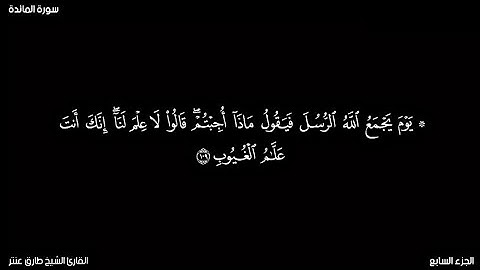 سورة المائدة
۞ يَوْمَ يَجْمَعُ ٱللَّهُ ٱلرُّسُلَ فَيَقُولُ مَاذَآ أُجِبْتُمْ ۖ قَالُوا۟ لَا عِلْمَ لَنَآ ۖ إِنَّكَ أَنتَ
عَلَّـٰمُ ٱلْغُيُوبِ ۝١٠٩
الجزء السابع
القارئ الشيخ طارق عنتر